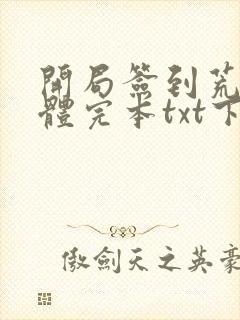 開局簽到荒
體完本txt下
傲劍天之英豪